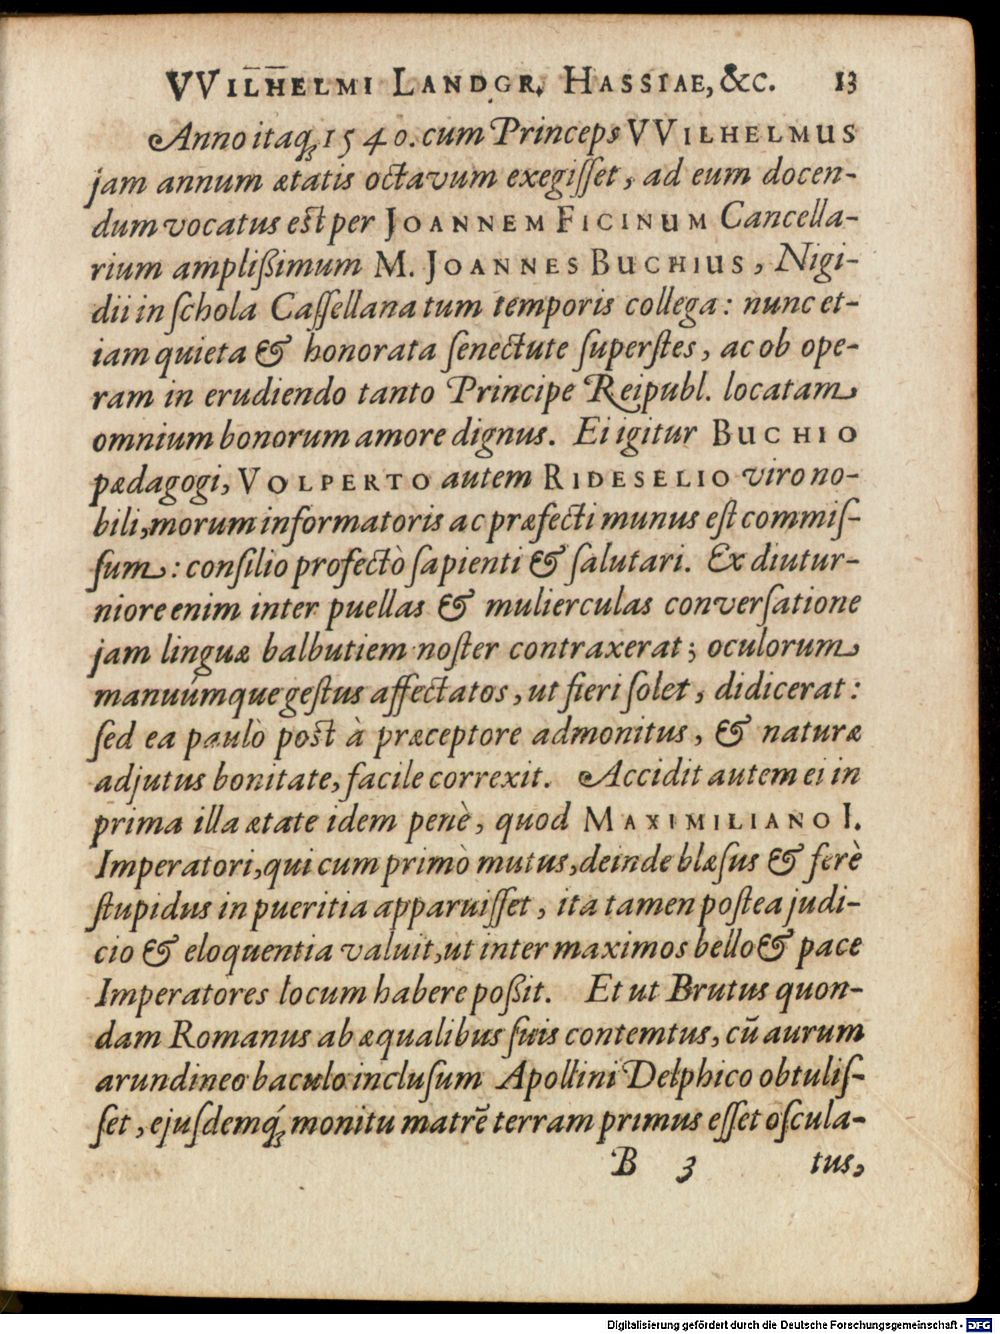 VVILHELMI LANDGR. HASSIAE, &C. 13
Anno itaq; 1540. cum Princeps VVILHELMUS
jam annum ætatis octavum exegiſſet, ad eum docen-
dum vocatus est per JOANNEM FICINUM Cancella-
rium ampliſſimum M. JOANNES BUCHIUS, Nigi-
dii in ſchola Caſſellana tum temporis collega: nunc et-
iam quieta & honorata ſenectute ſuperſtes, ac ob ope-
ram in erudiendo tanto Principe Reipubl. locatam
omnium bonorum amore dignus. Ei igitur BUCHIO
pædagogi, VOLPERTO autem RIDESELIO viro no-
bili, morum informatoris ac præfecti munus eſt commiſ-
ſum: conſilio profectò ſapienti & ſalutari. Ex diutur-
niore enim inter puellas & mulierculas converſatione
jam linguæ balbutiem noſter contraxerat; oculorum
manuúmque geſtus affectatos, ut fieri ſolet, didicerat:
ſed ea paulò post à præceptore admonitus, & naturæ
adjutus bonitate, facile correxit. Accidit autem ei in
prima illa ætate idem penè, quod MAXIMILIANO I.
Imperatori, qui cum primò mutus, deinde blæſus & ferè
ſtupidus in pueritia apparuiſſet, ita tamen poſtea judi-
cio & eloquentia valuit, ut inter maximos bello & pace
Imperatores locum habere poßit. Et ut Brutus quon-
dam Romanus ab æqualibus ſuis contemtus, cū aurum
arundineo baculo incluſum Apollini Delphico obtuliſ-
ſet, ejuſdemq́; monitu matrē terram primus eſſet oſcula-
B 3 tus,
Digitalisierung gefördert durch die Deutsche Forschungsgemeinschaft - DFG